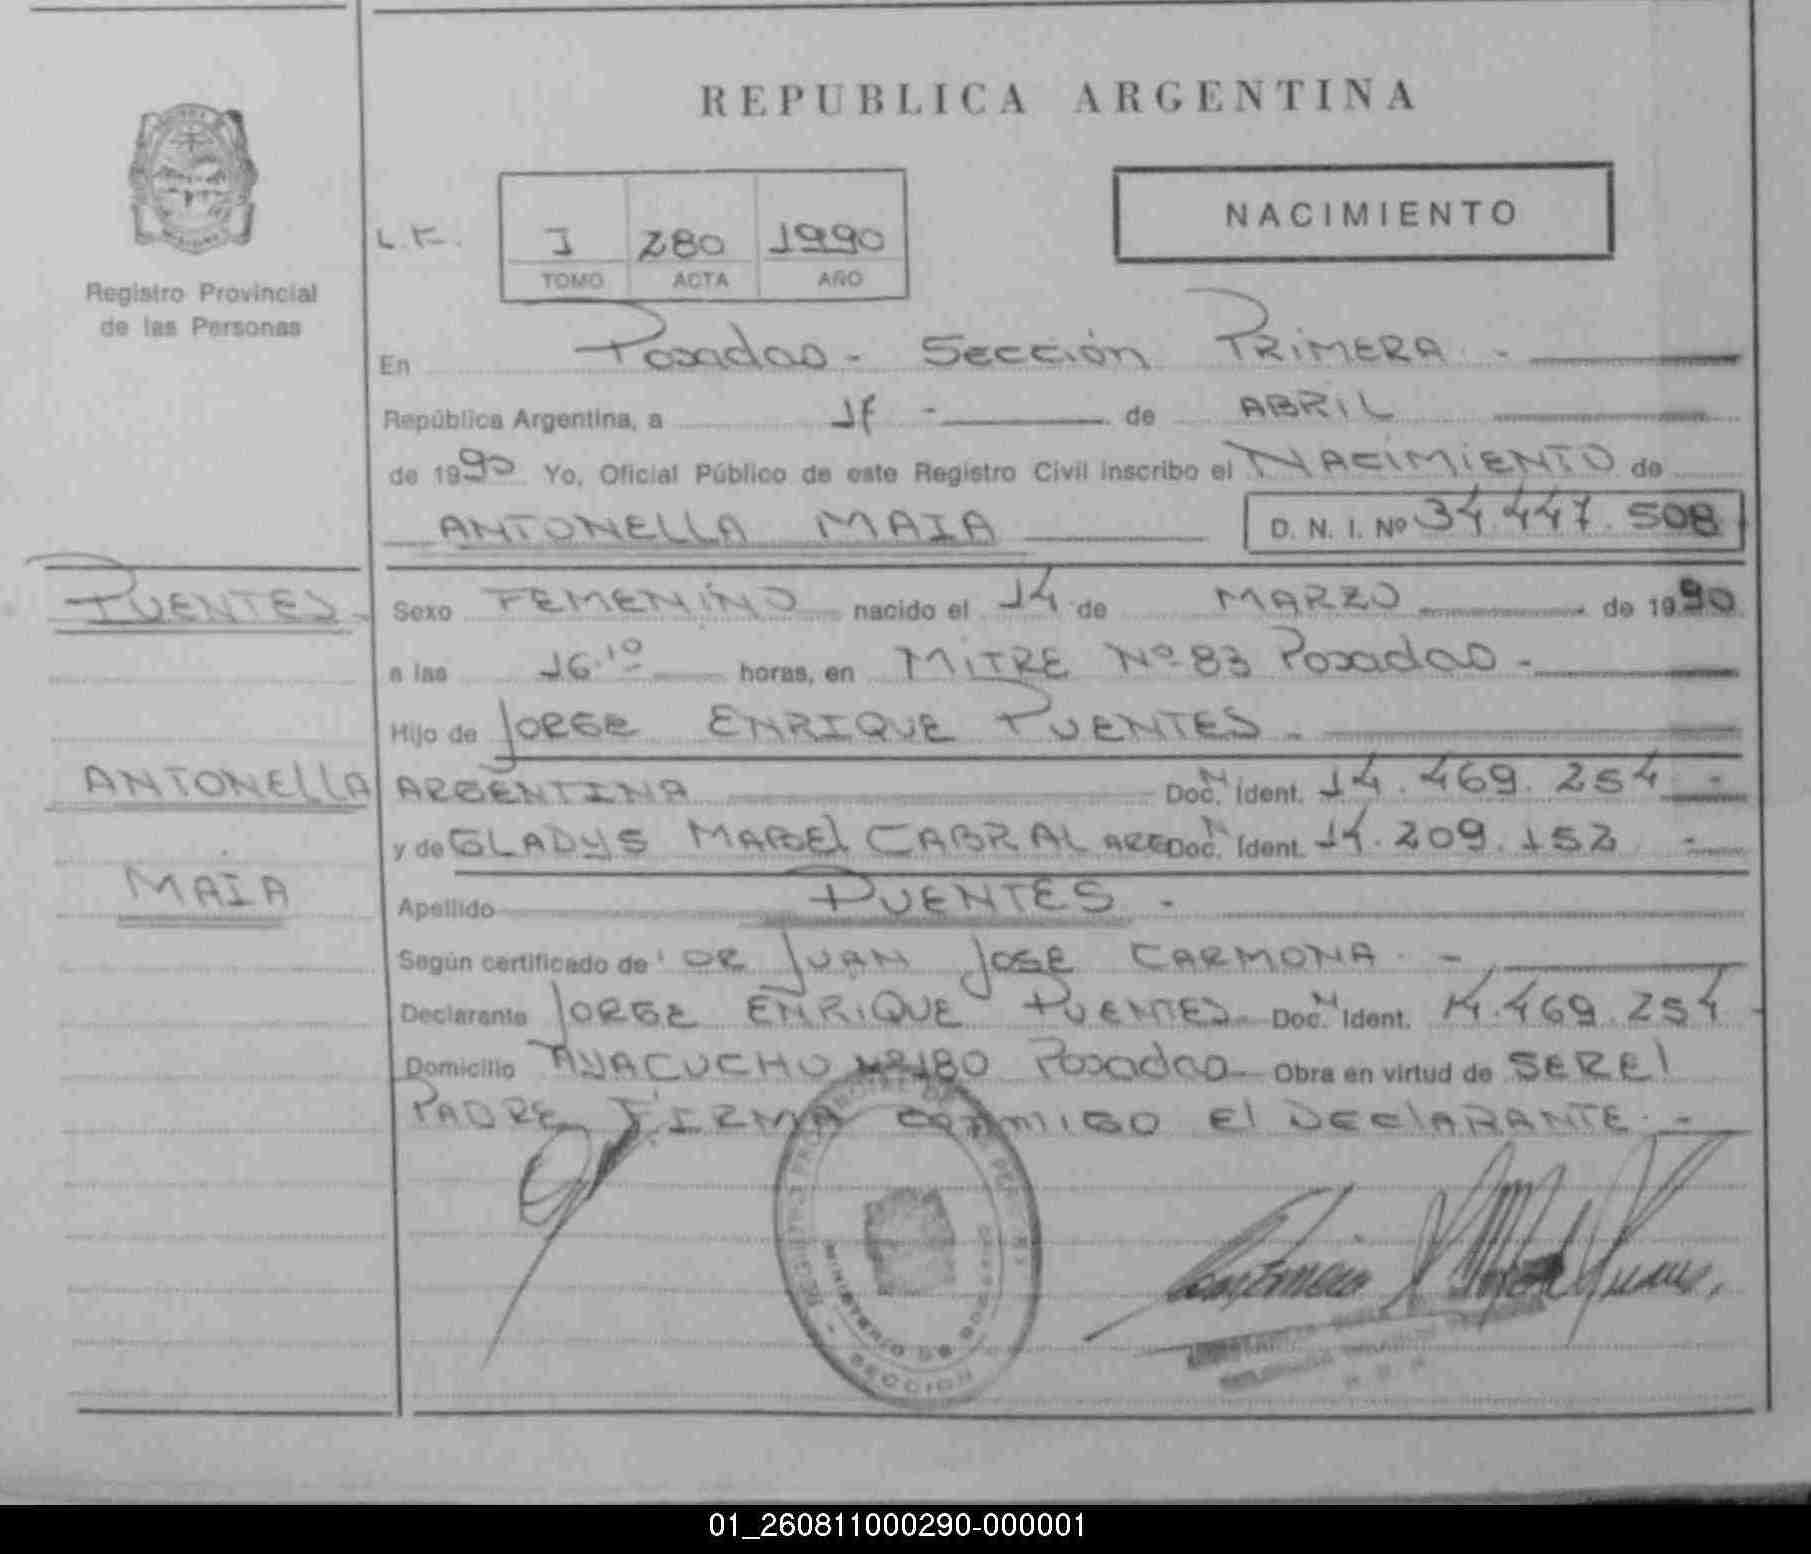 REPUBLICA ARGENTINA
NACIMIENTO
L.F.
I 280 1990
TOMO ACTA AÑO
Registro Provincial
de las Personas
En Posadas - Sección PRIMERA. -
República Argentina, a - de ABRIL
de 1990 Yo, Oficial Público de este Registro Civil inscribo el NACIMIENTO de
ANTONELLA MAIA D. N. I. Nº 34.447.508
PUENTES
Sexo FEMENINO nacido el 14 de MARZO de 1990
a las 16.10 horas, en MITRE Nº 83 Posadas -
Hijo de JORGE ENRIQUE PUENTES -
ANTONEllA
ARGENTINA Doc. N Ident. 14.469.254 -
y de GLADYS MABEl CABRAL ARG Doc. N Ident. 14.209.152 -
MAIA
Apellido PUENTES -
Según certificado de DR JUAN JOSE CARMONA. -
Declarante JORGE ENRIQUE PUENTES Doc. N Ident. 14.469.254 -
Domicilio AYACUCHO Nº 180 Posadas Obra en virtud de SER El
PADRE FIRMA CONMIGO El DEClARANTE. -
MINISTERIO DE GOB
SECCION
01_260811000290-000001